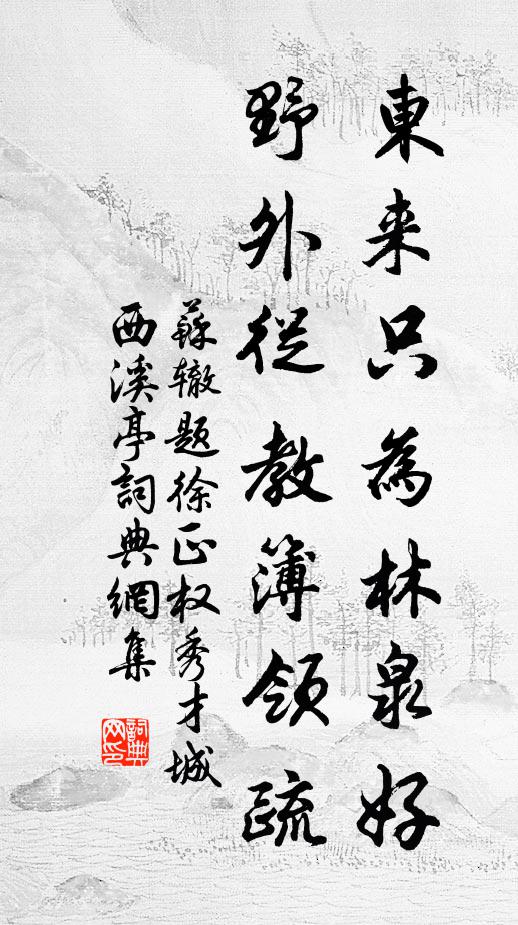 東来只為林泉好
野外從教簿領疏
蘇辙題徐正权秀才城
西溪亭詞典網集
詞典网印